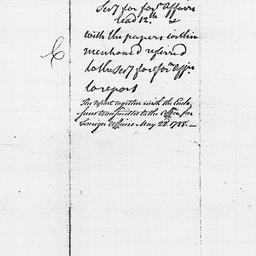 Secy for forn Affairs
read 12th &
with the papers within
mentioned referred
to the Secy for forn Affrs
to report
The report together with the Enclo
sures transmitted to the Office for
foreign Affairs May 22 1788.—